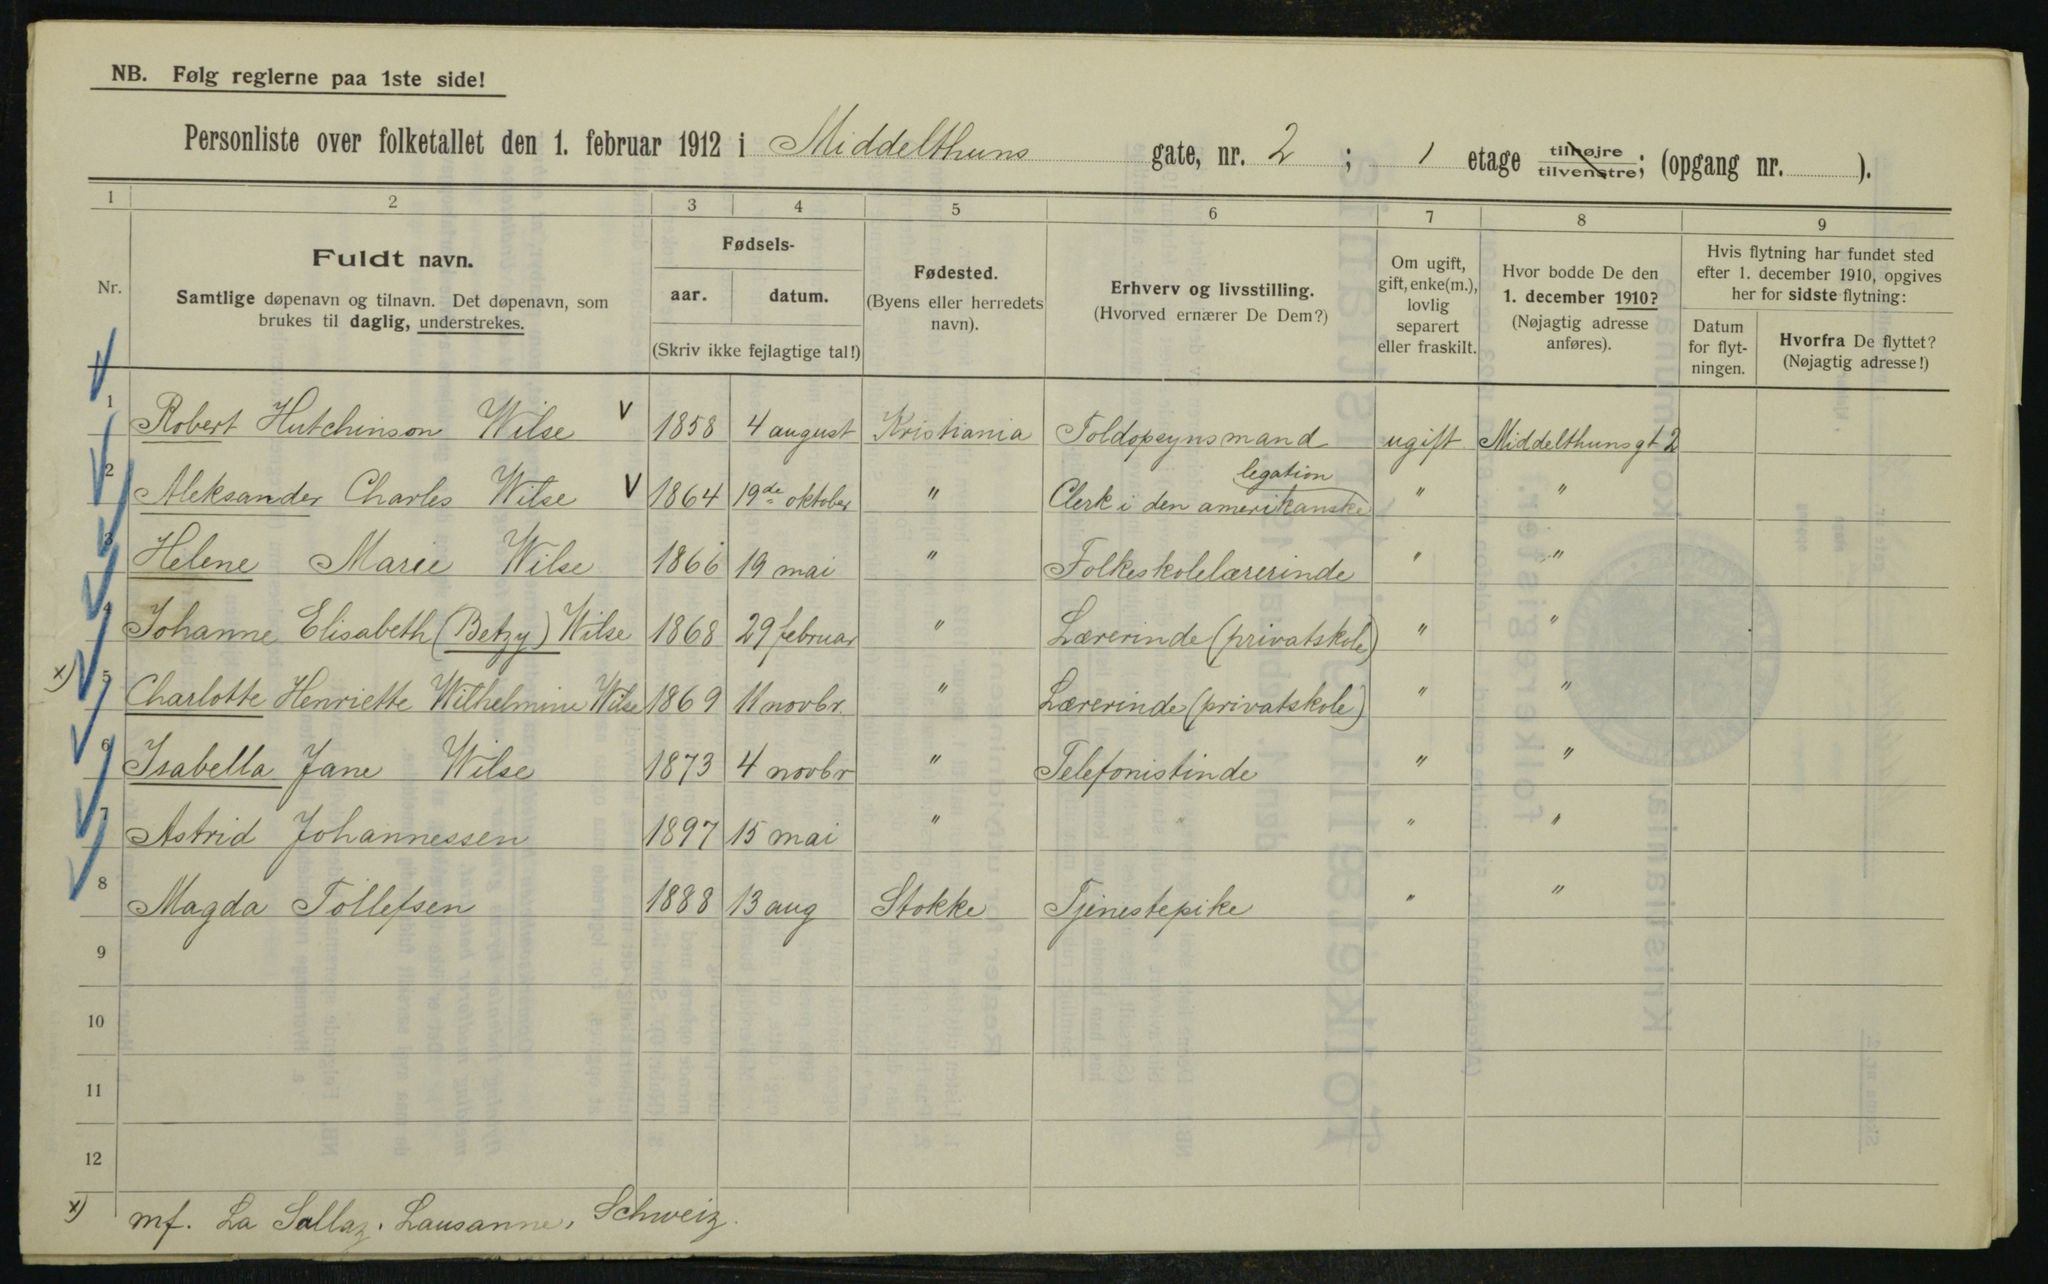 NB. Følg reglerne paa 1ste side!
Personliste over folketallet den 1. februar 1912 i Middelthuns gate, nr. 2 ; 1 etage tilhøjre / tilvenstre; (opgang nr. ).
1 2 3 4 5 6 7 8 9
Nr.
Fuldt navn.
Samtlige døpenavn og tilnavn. Det døpenavn, som
brukes til daglig, understrekes.
Fødsels-
aar. datum.
(Skriv ikke fejlagtige tal!)
Fødested.
(Byens eller herredets
navn).
Erhverv og livsstilling.
(Hvorved ernærer De Dem?)
Om ugift,
gift, enke(m.),
lovlig
separert
eller fraskilt.
Hvor bodde De den
1. december 1910?
(Nøjagtig adresse
anføres).
Hvis flytning har fundet sted
efter 1. december 1910, opgives
her for sidste flytning:
Datum
for flyt-
ningen.
Hvorfra De flyttet?
(Nøjagtig adresse!)
1 Robert Hutchinson Wilse V 1858 4 august Kristiania Toldopsynsmand ugift Middelthunsgt 2
2 Aleksander Charles Wilse V 1864 19de oktober " Clerk i den amerikanske legation " "
3 Helene Marie Wilse 1866 19 mai " Folkeskolelærerinde " "
4 Johanne Elisabeth (Betzy) Wilse 1868 29 februar " Lærerinde (privatskole) " "
x) 5 Charlotte Henriette Wilhelmine Wilse 1869 11 novbr. " Lærerinde (privatskole) " "
6 Isabella Jane Wilse 1873 4 novbr " Telefonistinde " "
7 Astrid Johannessen 1897 15 mai " " " "
8 Magda Tollefsen 1888 13 aug Stokke Tjenestepike " "
9
10
11
12
x) mf. La Sallaz. Lausanne. Schweiz.